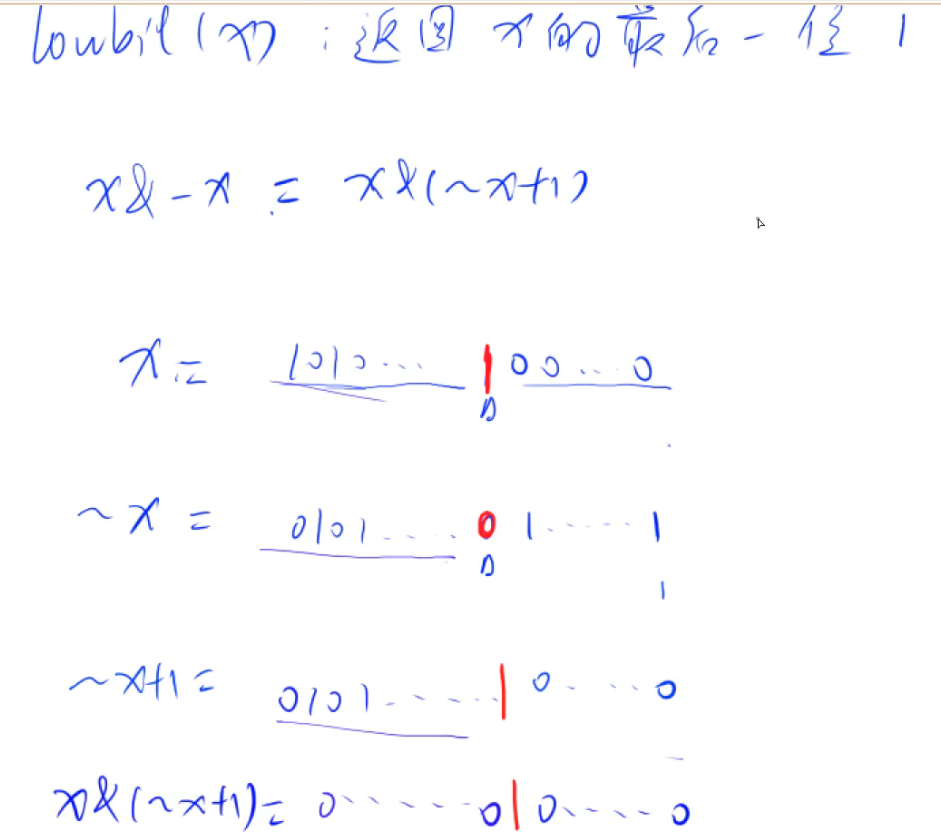 lowbit(x) : 返回 x的最后一位 1
x&-x = x&(~x+1)
x= 1010... 1 00...0
~x = 0101..... 0 1......1
1
~x+1= 0101......1 0....0
x&(~x+1)= 0.....0 1 0.....0